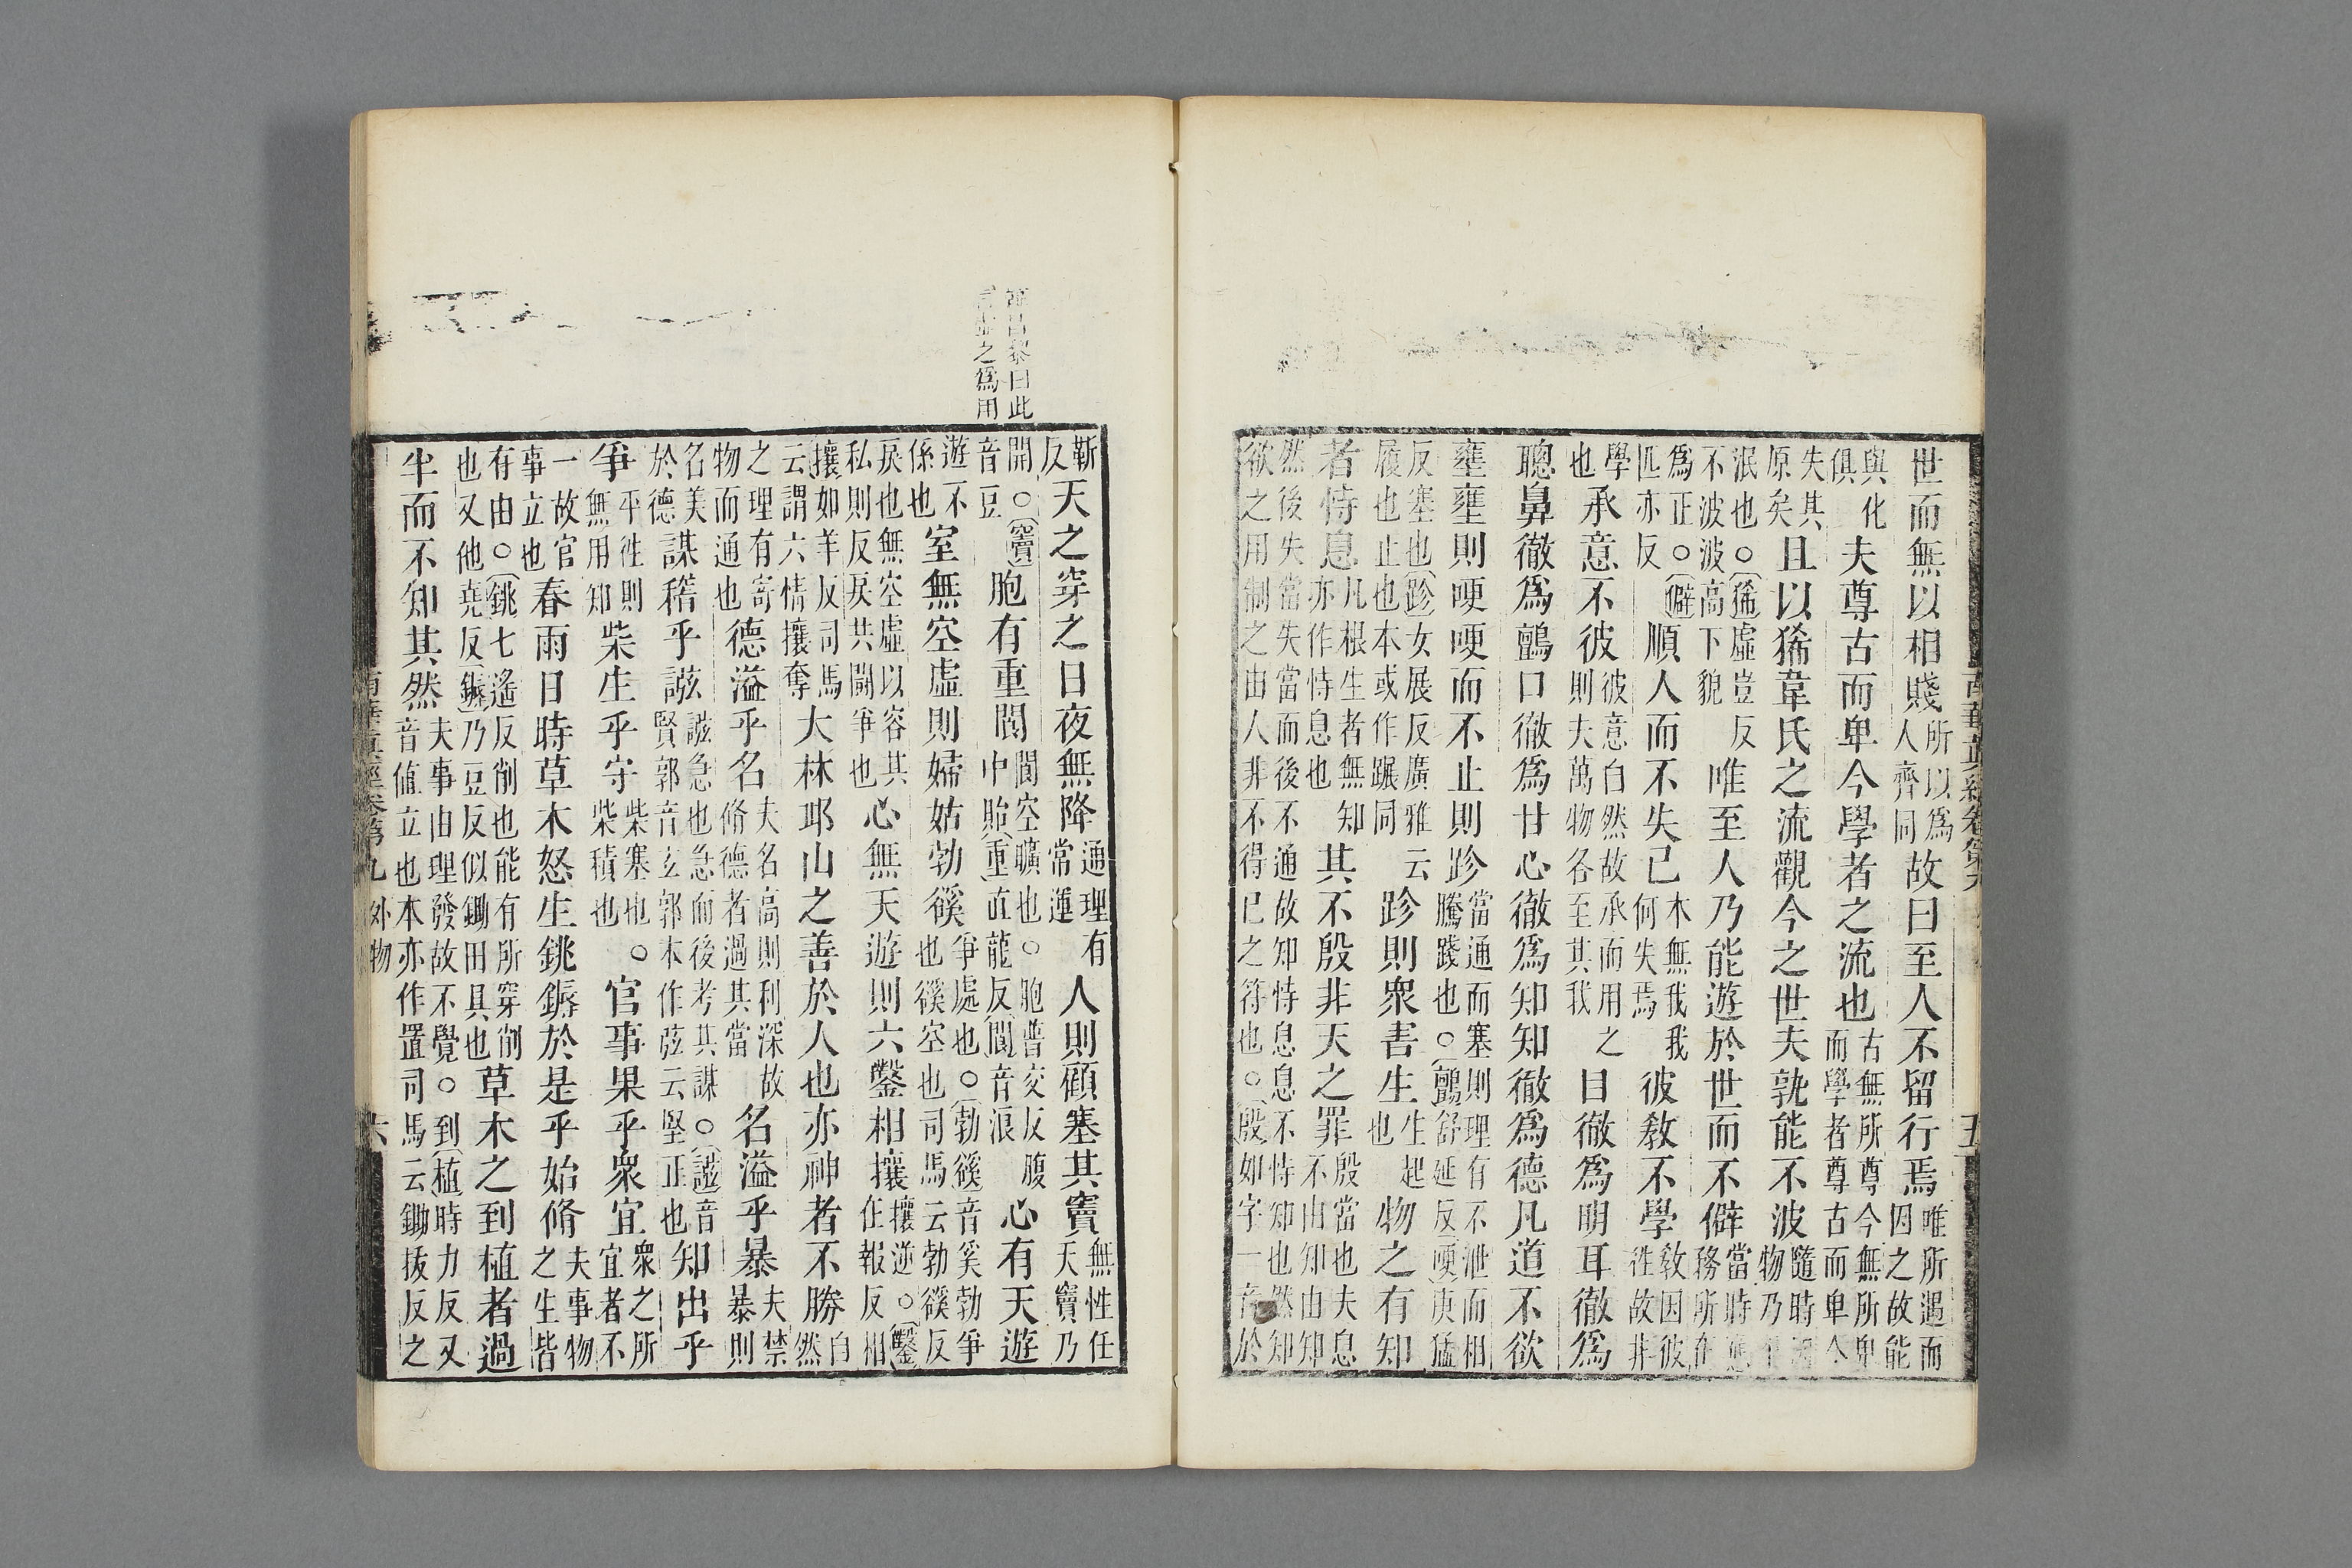 世而無以相賤所以為人齊同故曰至人不留行焉唯所遇而因之故能
與化俱夫尊古而卑今學者之流也古無所尊今無所卑而學者尊古而卑今
失其原矣且以狶韋氏之流觀今之世夫孰能不波隨時因物乃
泯也○狶虛豈反不波波高下貌唯至人乃能遊於世而不僻當時應務所在
為正○僻匹亦反順人而不失己本無我我何失焉彼教不學教因彼性故非
學也承意不彼彼意自然故承而用之則夫萬物各至其我目徹為明耳徹為
聰鼻徹為顫口徹為甘心徹為知知徹為德凡道不欲
壅壅則哽哽而不止則跈當通而塞則理有不泄而相騰踐也○顫舒延反哽庚猛
反塞也跈女展反廣雅云履也止也本或作蹍同跈則衆害生生起也物之有知
者恃息凡根生者無知亦作恃息也其不殷非天之罪殷當也夫息不由知由知
然後失當失當而後不通故知恃息息不恃知也然知欲之用制之由人非不得已之符也○殷如字一音於
南華真經卷第九
五
蘄反天之穿之日夜無降通理有常運人則顧塞其竇無性任天竇乃
開○竇音豆胞有重閬閬空曠也○胞普交反腹中胎重直龍反閬音浪心有天遊
遊不係也室無空虛則婦姑勃豀爭處也○勃豀音奚勃爭也豀空也司馬云勃豀反
戾也無空虛以容其私則反戾共鬬爭也心無天遊則六鑿相攘攘逆○鑿任報反相
攘如羊反司馬云謂六情攘奪大林邱山之善於人也亦神者不勝自然
之理有寄物而通也德溢乎名夫名高則利深故脩德者過其當名溢乎暴夫禁暴則
名美於德謀稽乎誸誸急也急而後考其謀○誸音賢郭音玄郭本作弦云堅正也知出乎
爭平往則無用知柴生乎守柴塞也柴積也○官事果乎衆宜衆之所宜者不
一故官事立也春雨日時草木怒生銚鎒於是乎始脩夫事物之生皆
有由○銚七遙反削也能有所穿削也又他堯反鎒乃豆反似鋤田具也草木之到植者過
半而不知其然夫事由理發故不覺○到植時力反又音値立也本亦作置司馬云鋤拔反之
南華真經卷第九 外物
六
曰此
之為用